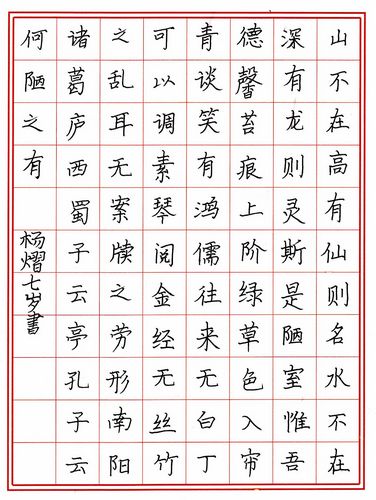 山不在高有仙则名水不在
深有龙则灵斯是陋室惟吾
德馨苔痕上阶绿草色入帘
青谈笑有鸿儒往来无白丁
可以调素琴阅金经无丝竹
之乱耳无案牍之劳形南阳
诸葛庐西蜀子云亭孔子云
何陋之有
杨熠七岁書